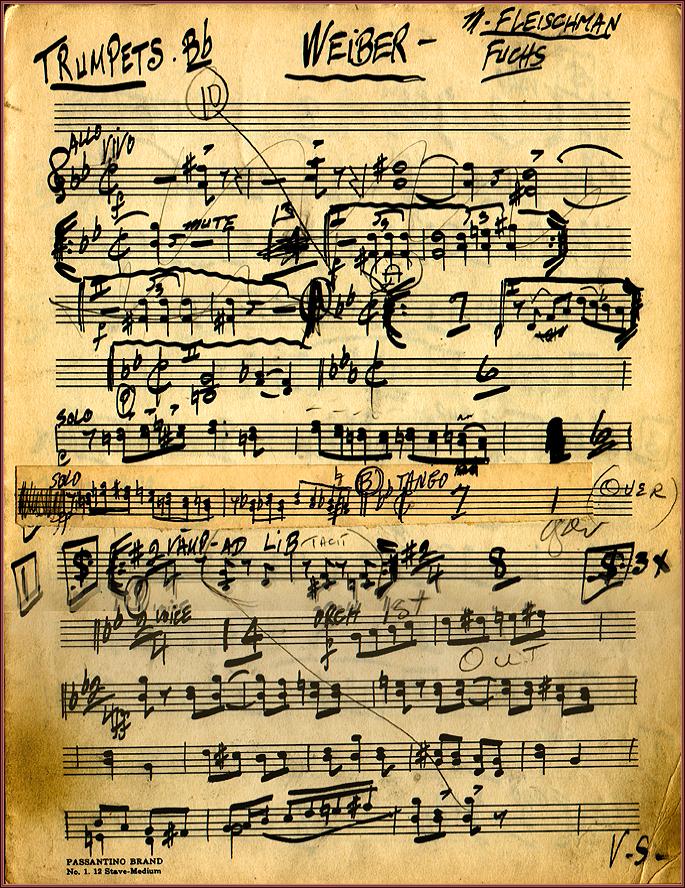 TRUMPETS. Bb WEIBER - N. FLEISCHMAN
FUCHS
10
ALLO VIVO
f
MUTE 13
I 3 3
f
II 3 A 7 II
f
II 6
SOLO 6
SOLO B TANGO 7 1 (OVER)
1 $ #2 VAMP - AD LIB TACIT #2/4 8 $ 3X
2 VOICE 14 ORCH 1ST
f
OUT
2
ff
V-S-
PASSANTINO BRAND
No. 1. 12 Stave-Medium